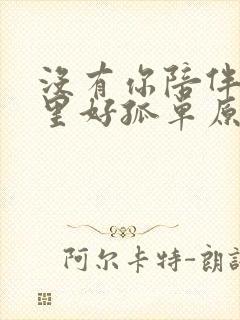 没有你陪伴
里好孤单原
阿尔卡特-朗